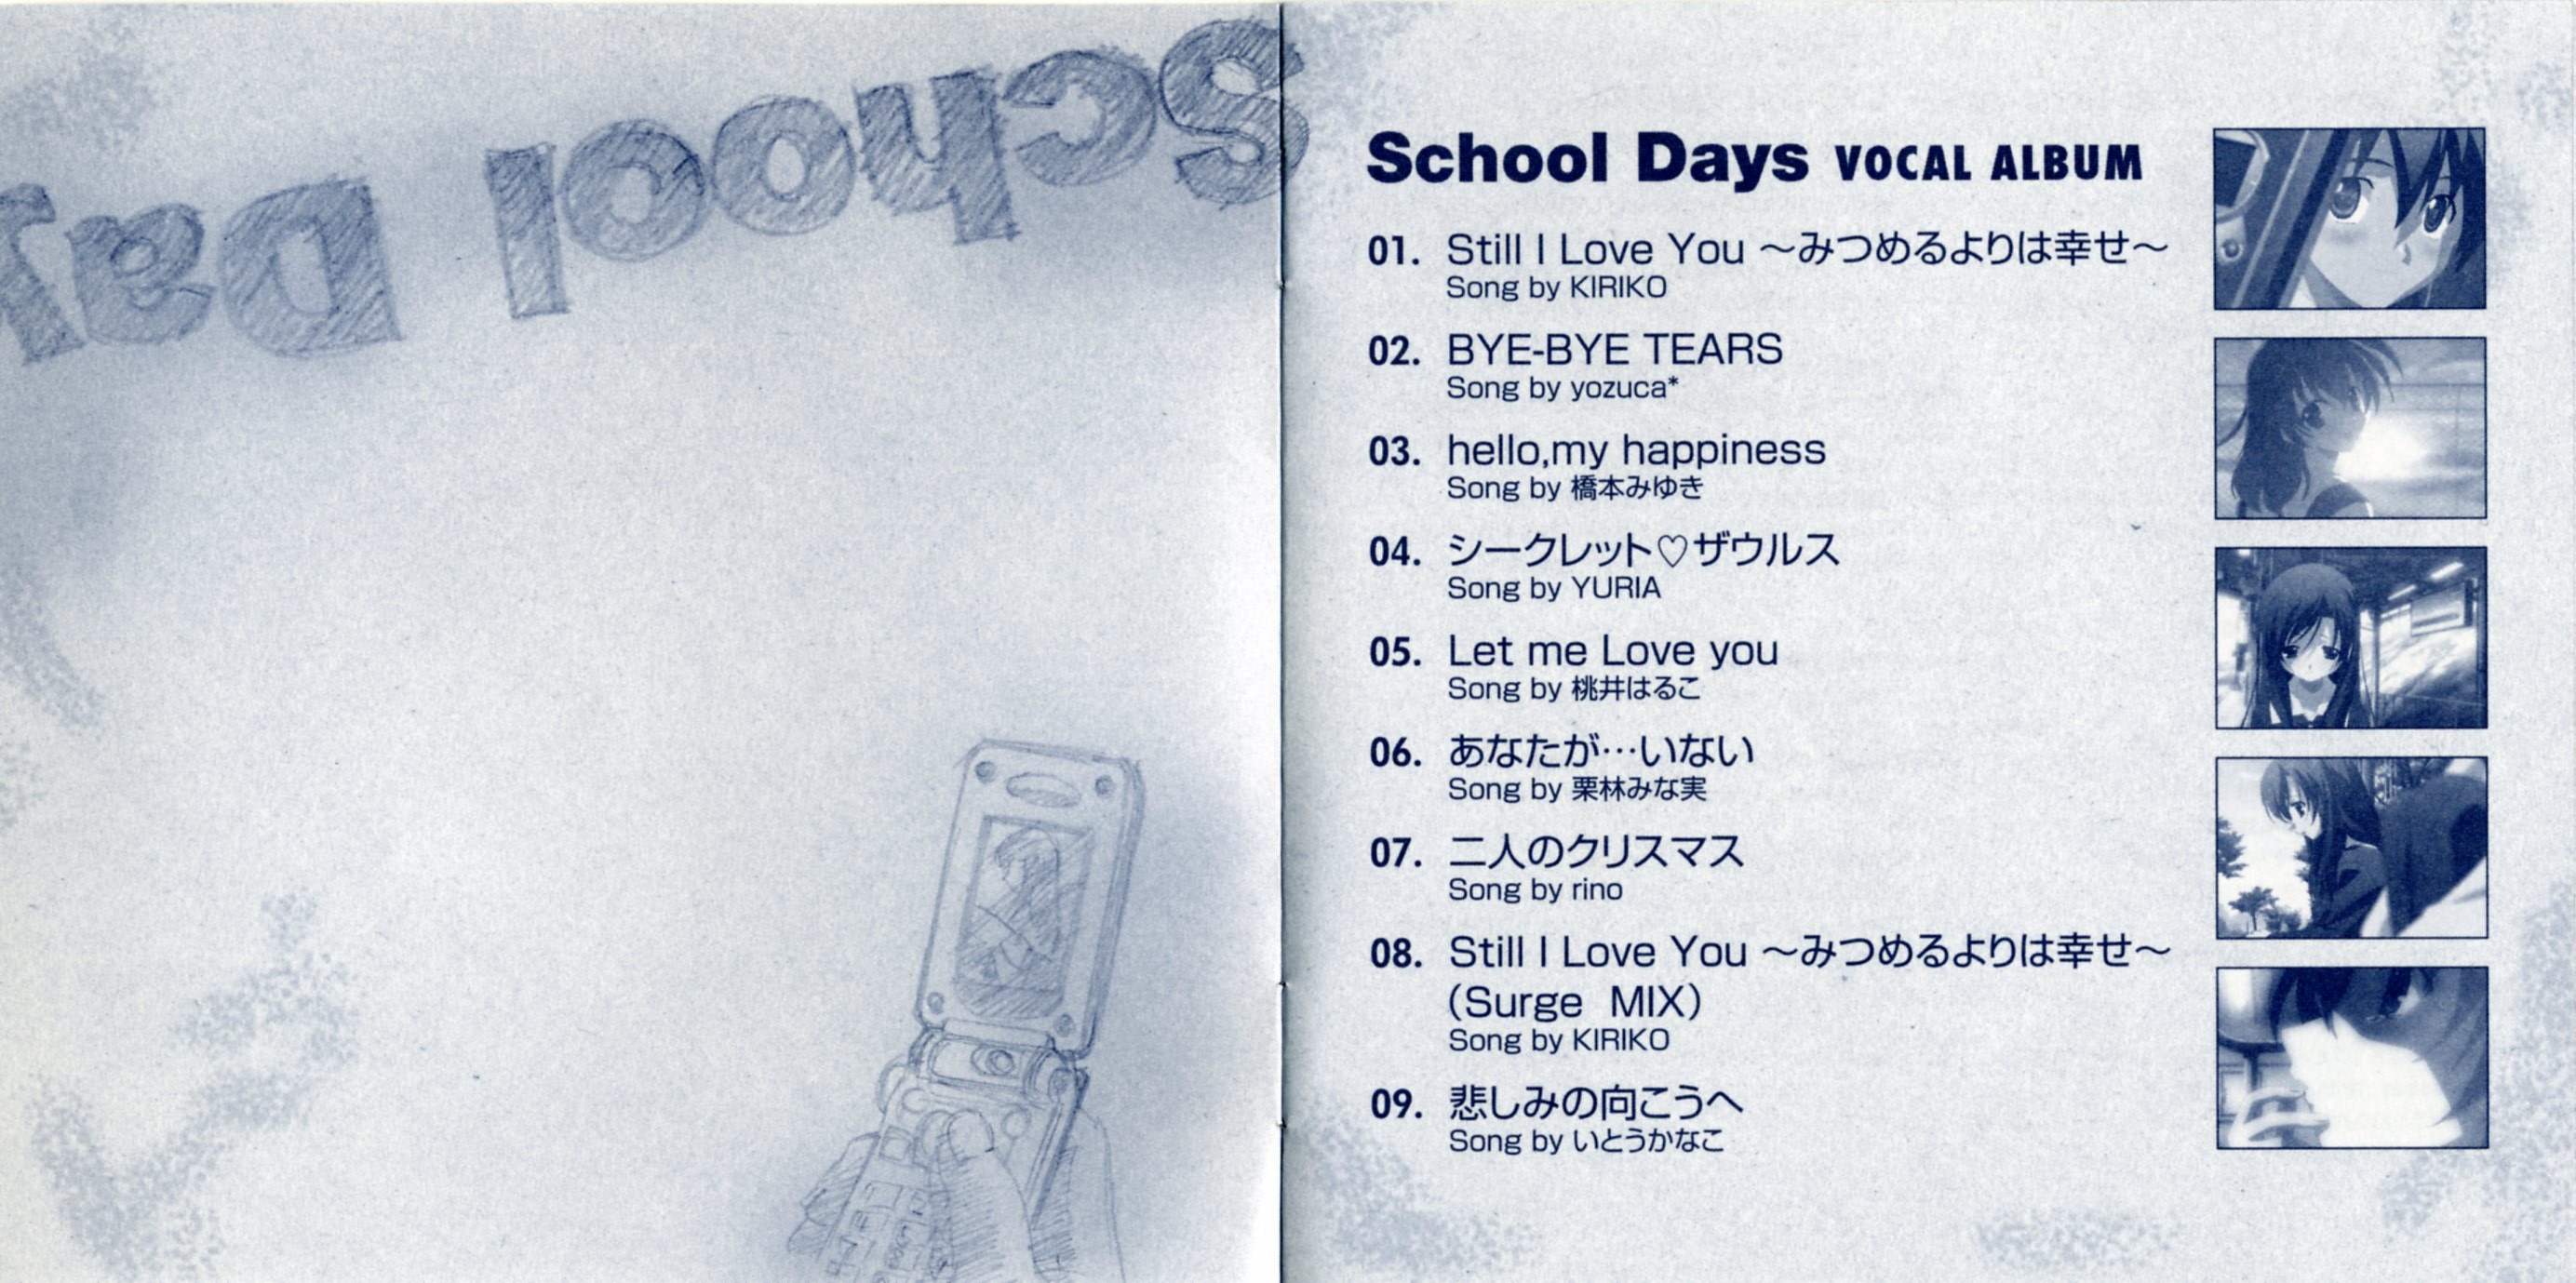 School Day
School Days VOCAL ALBUM
01. Still I Love You ～みつめるよりは幸せ～
Song by KIRIKO
02. BYE-BYE TEARS
Song by yozuca*
03. hello,my happiness
Song by 橋本みゆき
04. シークレット♡ザウルス
Song by YURIA
05. Let me Love you
Song by 桃井はるこ
06. あなたが…いない
Song by 栗林みな実
07. 二人のクリスマス
Song by rino
08. Still I Love You ～みつめるよりは幸せ～
(Surge MIX)
Song by KIRIKO
09. 悲しみの向こうへ
Song by いとうかなこ